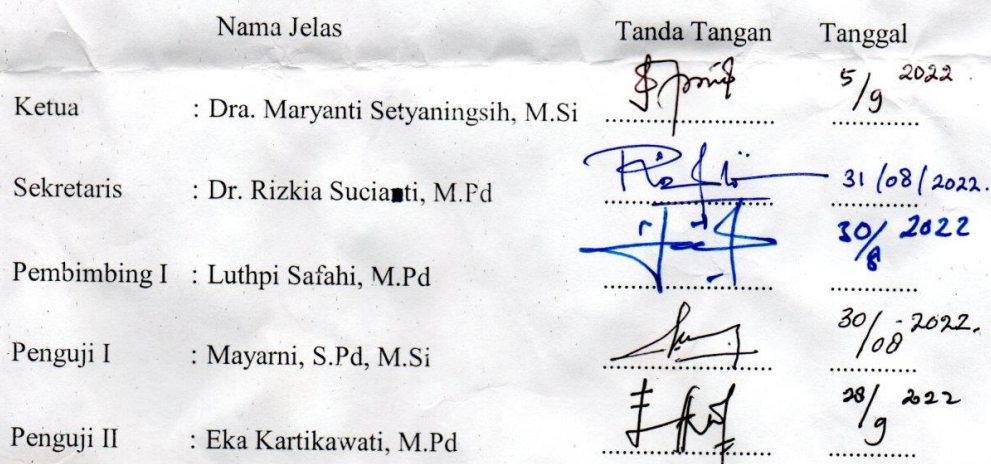 Nama Jelas Tanda Tangan Tanggal
Ketua : Dra. Maryanti Setyaningsih, M.Si 5/9 2022
Sekretaris : Dr. Rizkia Sucianti, M.Pd 31/08/2022.
Pembimbing I : Luthpi Safahi, M.Pd 30/8 2022
Penguji I : Mayarni, S.Pd, M.Si 30/08-2022.
Penguji II : Eka Kartikawati, M.Pd 28/9 2022